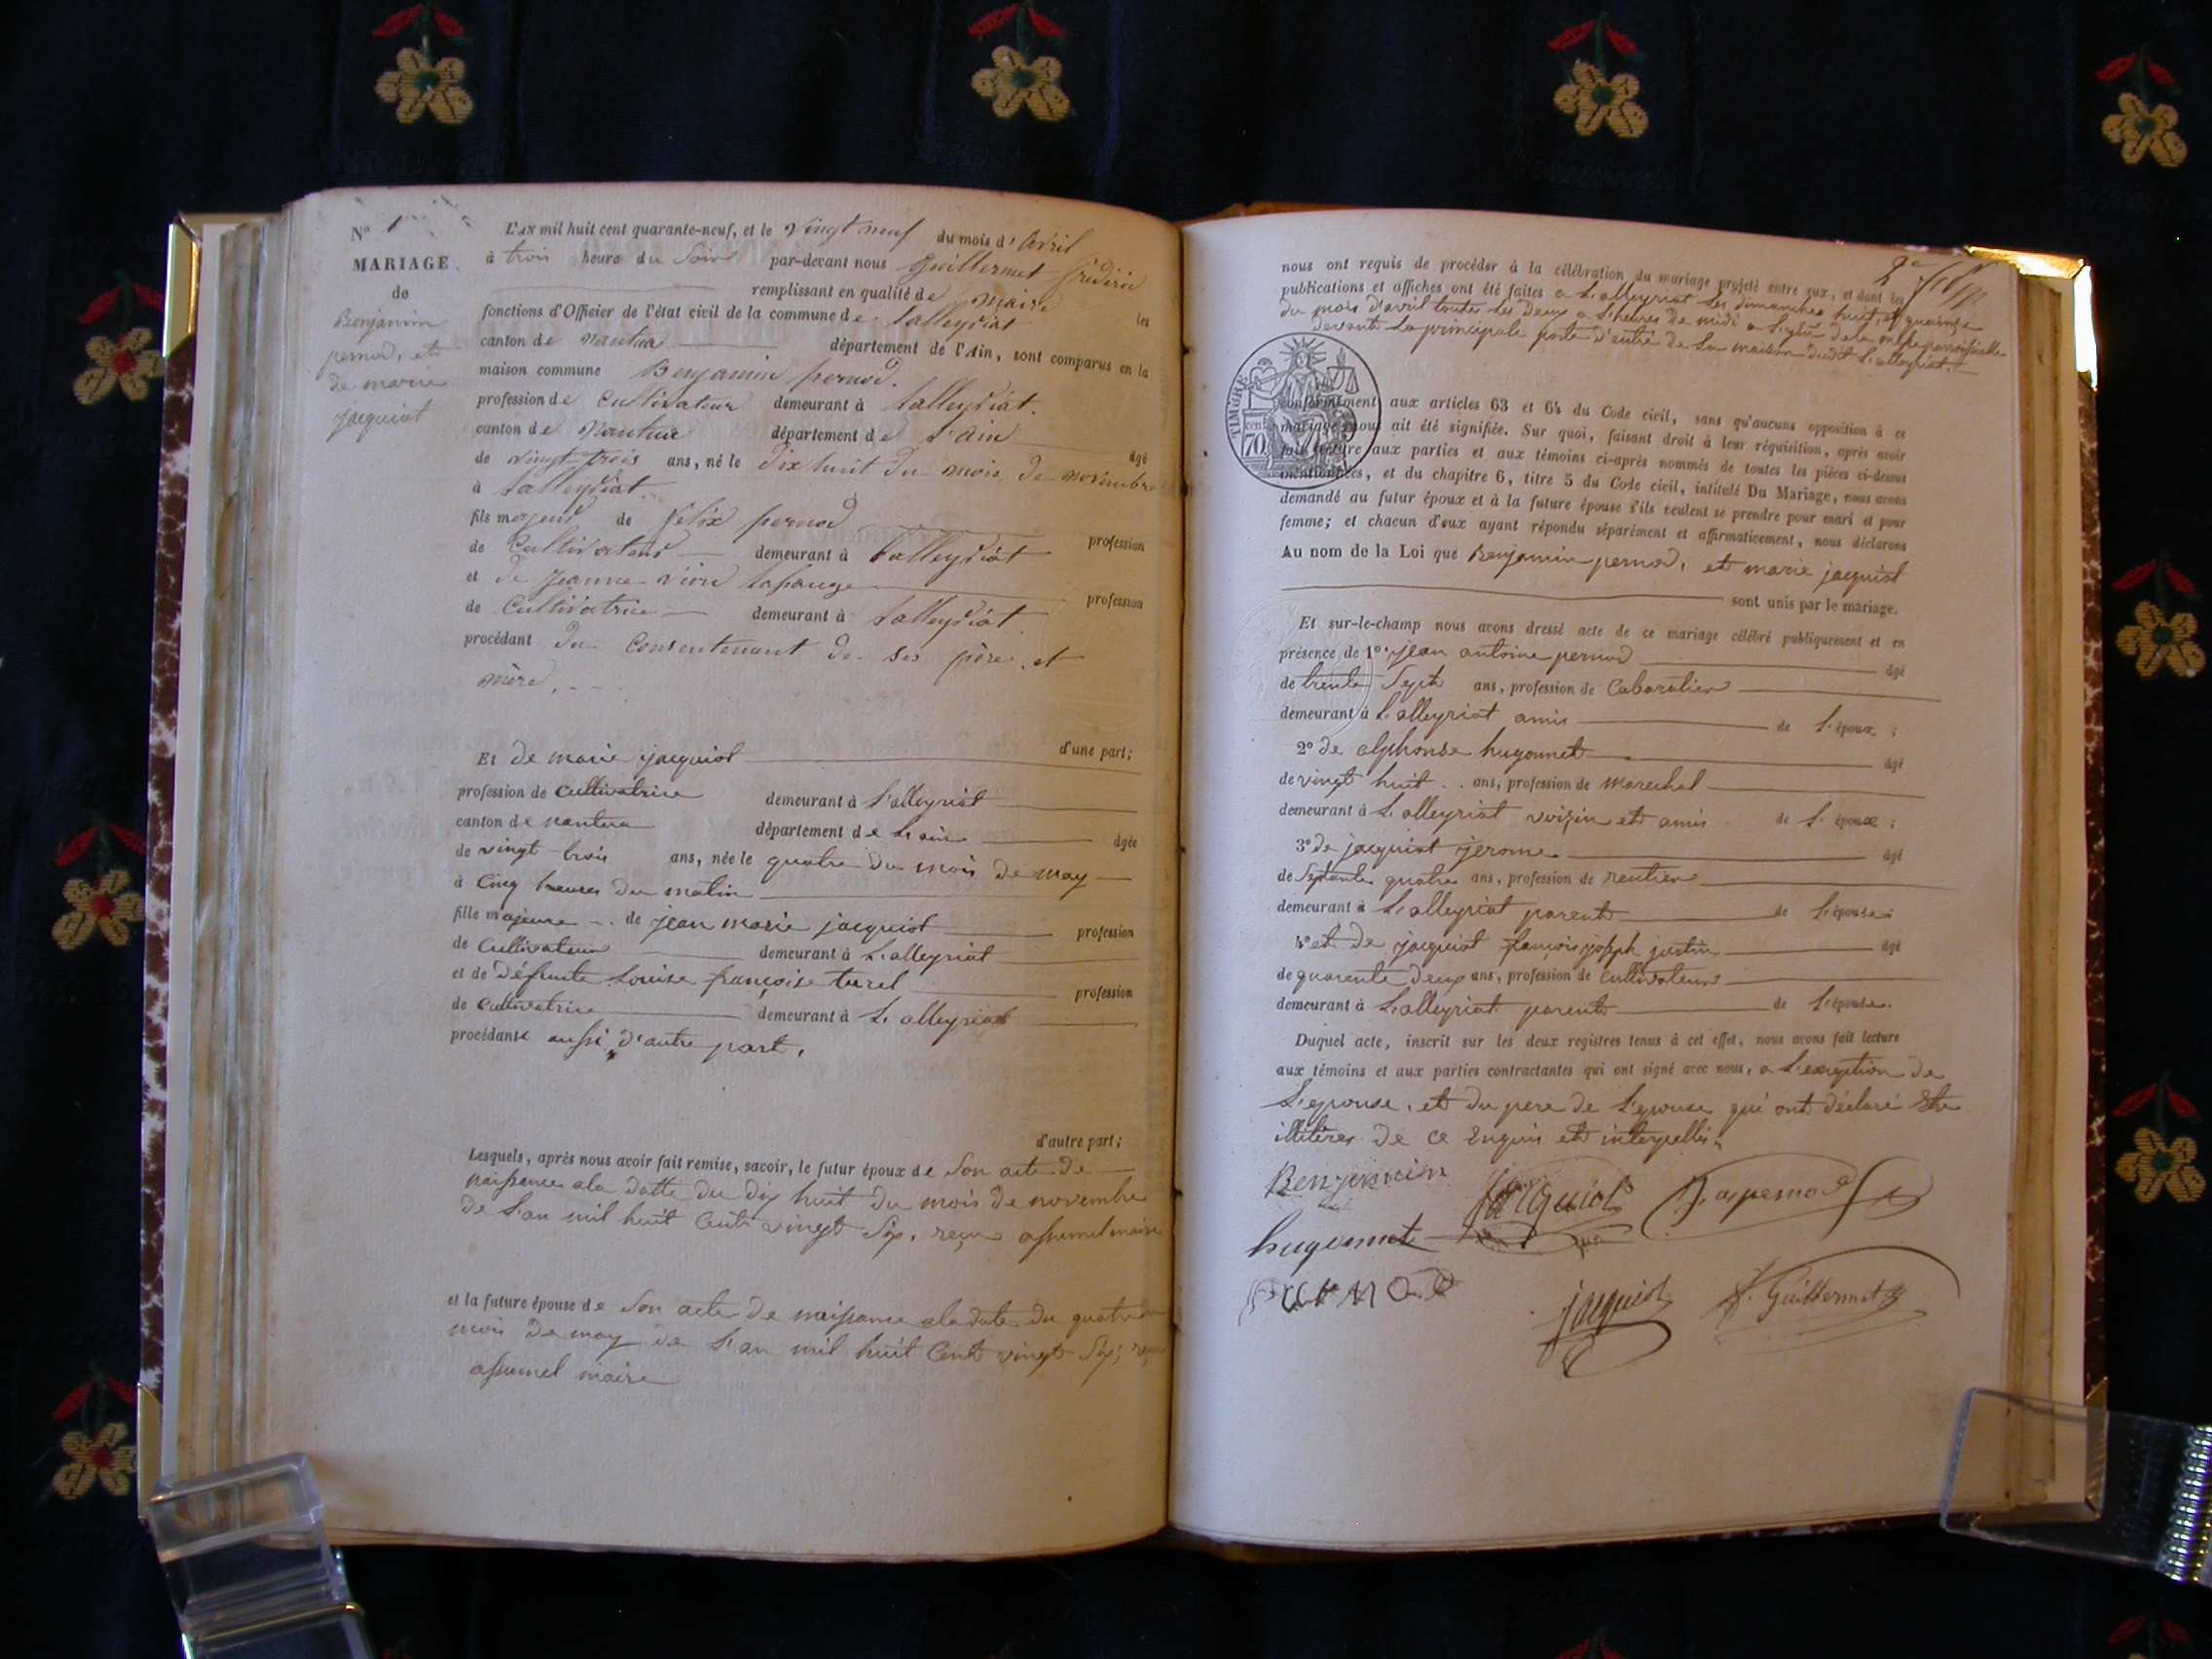 N° 1
MARIAGE
de
Benjamin
pernod, et
de marie
jacquiot
L'AN mil huit cent quarante-neuf, et le vingt neuf du mois d'avril
à trois heure du Soir par-devant nous Guillermet frédéric
remplissant en qualité de maire les
fonctions d'Officier de l'état civil de la commune de Lalleyriat
canton de nantua département de l'Ain, sont comparus en la
maison commune Benjamin pernod.
profession de Cultivateur demeurant à Lalleyriat.
canton de Nantua département de L'ain âgé
de vingt-trois ans, né le dix huit du mois de novembre
à Lalleyriat
fils majeur de félix pernod profession
de Cultivateur demeurant à Lalleyriat
et de Jeanne profession
de Cultivatrice demeurant à Lalleyriat
procédant du Consentement de ses père et
mère.
d'une part;
Et de marie jacquiot
profession de cultivatrice demeurant à L'alleyriat
canton de nantua département de L'ain âgée
de vingt trois ans, née le quatre du mois de may
à Cinq heures du matin
fille majeure de jean marie jacquiot profession
de Cultivateur demeurant à L'alleyriat
et de défunte Louise françoise turel profession
de Cultivatrice demeurant à L'alleyriat
procédante aussi d'autre part,
d'autre part;
Lesquels, après nous avoir fait remise, savoir, le futur époux de Son acte de
naissance ala datte du dix huit du mois de novembre
de L'an mil huit Cent vingt Six, reçu maire
et la future épouse de Son acte de naissance ala date du quatre du
mois de may de L'an mil huit Cent vingt Six, reçu
maire
2e
nous ont requis de procéder à la célébration du mariage projeté entre eux, et dont les
publications et affiches ont été faites a L'alleyriat Les dimanches huit, et quainze
du mois d'avril toutes Les Deux a L'heures de midi a L'issue de la messe parroissialle
devant La principale porte d'entré de La maison dudit L'alleyriat.
TIMBRE
70 cent
conformément aux articles 63 et 64 du Code civil, sans qu'aucune opposition à ce
mariage nous ait été signifiée. Sur quoi, faisant droit à leur réquisition, après avoir
fait lecture aux parties et aux témoins ci-après nommés de toutes les pièces ci-dessus
mentionnées, et du chapitre 6, titre 5 du Code civil, intitulé Du Mariage, nous avons
demandé au futur époux et à la future épouse s'ils veulent se prendre pour mari et pour
femme; et chacun d'eux ayant répondu séparément et affirmativement, nous déclarons
Au nom de la Loi que Benjamin pernod, et marie jacquiot
sont unis par le mariage.
Et sur-le-champ nous avons dressé acte de ce mariage célébré publiquement et en
présence de 1° Jean antoine pernod âgé
de trente Sept ans, profession de Cabaratier
demeurant à L'alleyriat amis de L'époux ;
2° de alphonse hugonnet âgé
de vingt huit ans, profession de marechal
demeurant à L'alleyriat voizin et amis de L'époux ;
3° de jacquiot jerome âgé
de Septante quatre ans, profession de rentier
demeurant à L'alleyriat parent de L'épouse ;
4° et de jacquiot françois joseph justin âgé
de quarente deux ans, profession de Cultivateur
demeurant à L'alleyriat parent de L'épouse.
Duquel acte, inscrit sur les deux registres tenus à cet effet, nous avons fait lecture
aux témoins et aux parties contractantes qui ont signé avec nous, a L'exception de
L'epouse, et du pere de L'epouse qui ont déclaré Etre
illitères de ce Enquis et interpellés
Benjamin jacquiot J. a pernod
hugonnet
PERNOD
jacquiot F. Guillermet